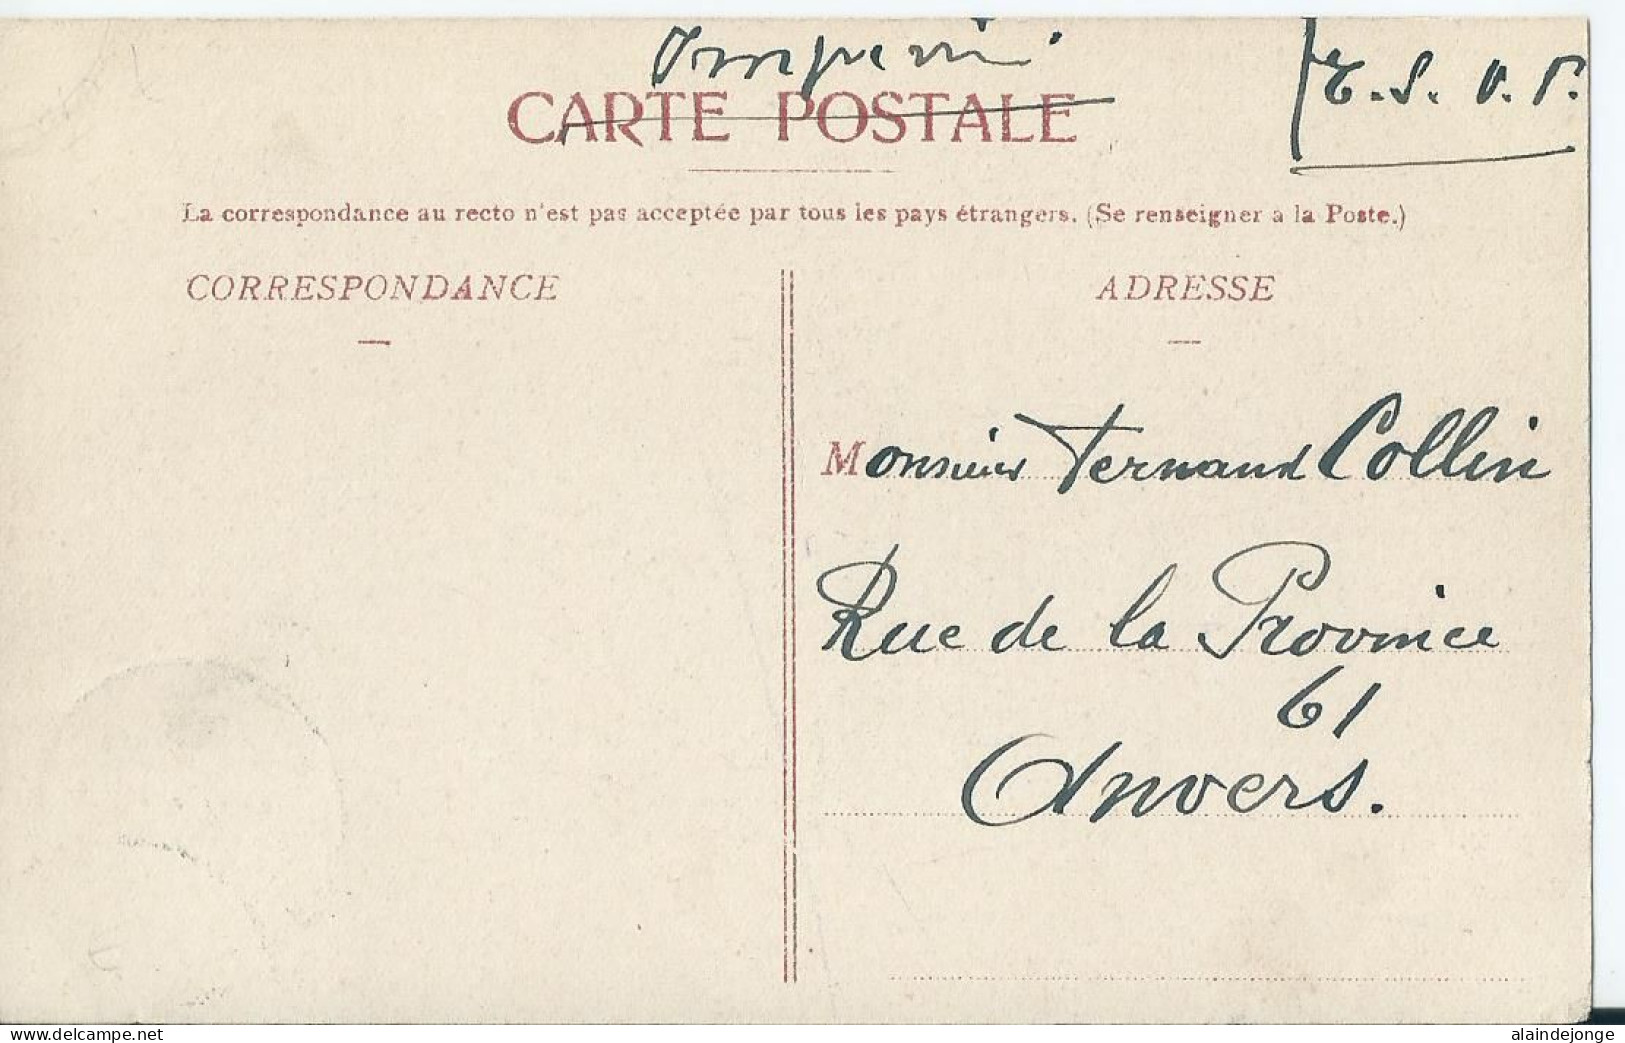 Imprimé
T. S. V. P.
CARTE POSTALE
La correspondance au recto n'est pas acceptée par tous les pays étrangers. (Se renseigner a la Poste.)
CORRESPONDANCE
ADRESSE
Monsieur Fernand Collin
Rue de la Province
61
Anvers.
www.delcampe.net
alaindejonge